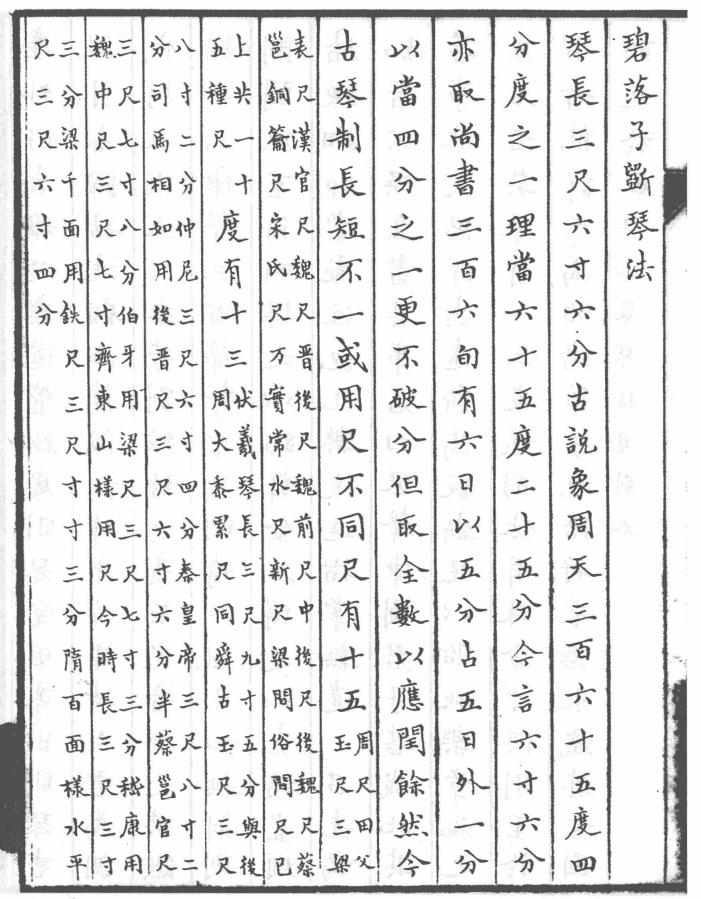 碧落子斵琴法
琴長三尺六寸六分古說象周天三百六十五度四
分度之一理當六十五度二十五分今言六寸六分
亦取尚書三百六旬有六日以五分占五日外一分
以當四分之一更不破分但取全數以應閏餘然今
古琴制長短不一或用尺不同尺有十五周尺田父
玉尺三梁
表尺漢官尺魏尺晉後尺魏前尺中後尺後魏尺蔡
邕銅籥尺宋氏尺万寶常水尺新尺梁問俗問尺已
上共一十
五種尺度有十三伏羲琴長三尺九寸五分與後
周大泰累尺同舜古玉尺三尺
八寸二分仲尼三尺六寸四分秦皇帝三尺八寸二
分司馬相如用後晋尺三尺六寸六分半蔡邕官尺
三尺七寸八分伯牙用梁尺三尺七寸三分嵇康用
魏中尺三尺七寸齊東山樣用尺今時長三尺三寸
三分梁千面用鉄尺三尺寸寸三分隋百面樣水平
尺三尺六寸四分